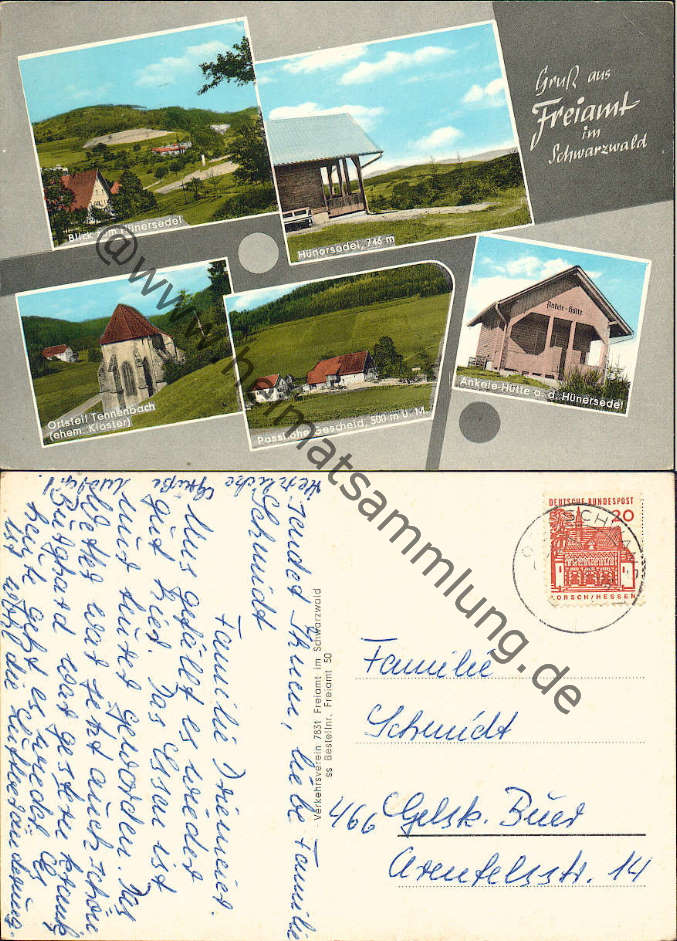 Gruß aus
Freiamt
im
Schwarzwald
Blick zum Hünersedel
Hünersedel, 746 m
Ortsteil Tennenbach
(ehem. Kloster)
Passhöhe Gescheid, 500 m ü. M.
Ankele-Hütte
Ankele-Hütte a. d. Hünersedel
@www.heimatsammlung.de
Herzliche Grüße
sendet Ihnen, liebe Familie
Schmidt
Familie
Uns gefällt es wieder
gut hier. Das Essen ist
nur teurer geworden. Das
Wetter war jetzt auch schön
Burghard war gestern krank
heute geht es wieder. Es
ist wohl die Luftveränderung.
Verkehrsverein 7831 Freiamt im Schwarzwald
ss Bestellnr. Freiamt 50
DEUTSCHE BUNDESPOST
20
LORSCH/HESSEN
Familie
Schmidt
466 Gelsk. Buer
Arenfelsstr. 14